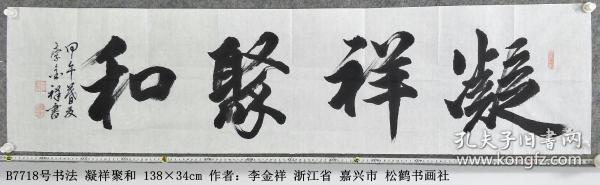 凝祥聚和
甲午
金祥書
孔夫子旧书网
www.kongfz.com
B7718号书法 凝祥聚和 138×34cm 作者：李金祥 浙江省 嘉兴市 松鹤书画社